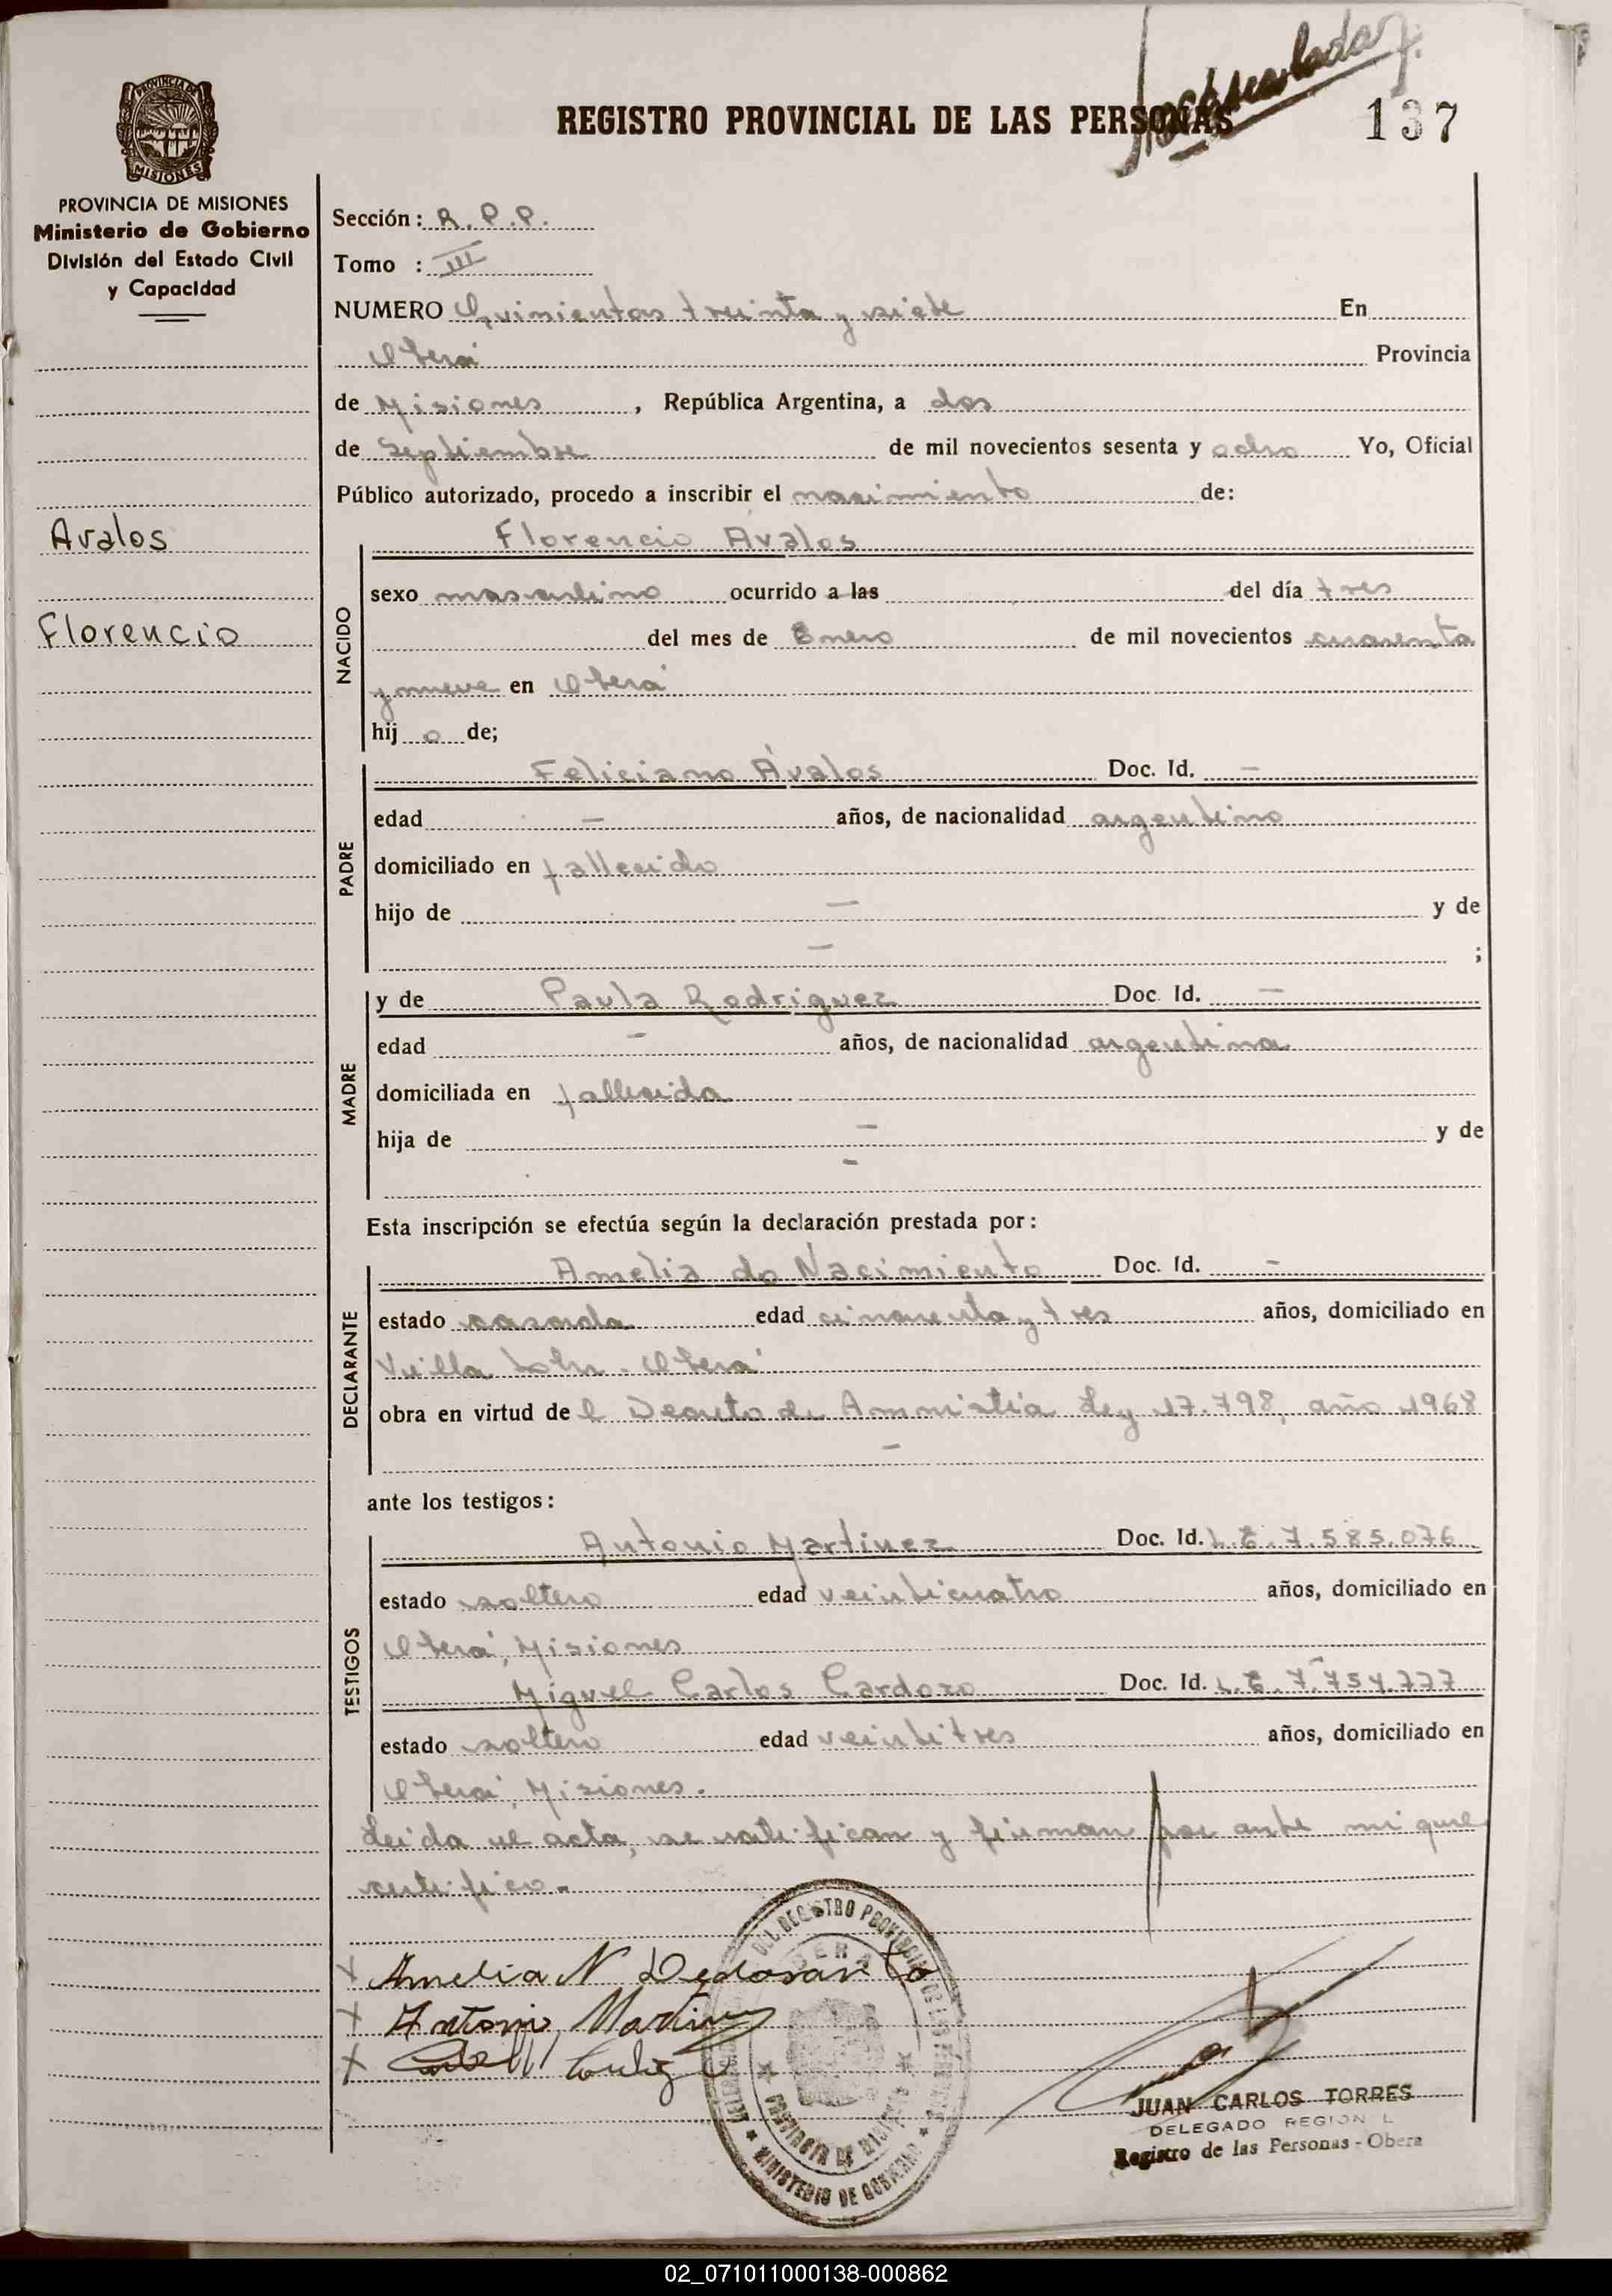 REGISTRO PROVINCIAL DE LAS PERSONAS
137
PROVINCIA DE MISIONES
Ministerio de Gobierno
División del Estado Civil
y Capacidad
Avalos
Florencio
Sección: R.P.P.
Tomo : III
NUMERO Quinientos treinta y siete En
Oberá Provincia
de Misiones, República Argentina, a dos
de Septiembre de mil novecientos sesenta y ocho Yo, Oficial
Público autorizado, procedo a inscribir el nacimiento de:
NACIDO
Florencio Avalos
sexo masculino ocurrido a las del día tres
del mes de Enero de mil novecientos cuarenta
y nueve en Oberá
hijo de;
PADRE
Feliciano Ávalos Doc. Id. —
edad — años, de nacionalidad argentino
domiciliado en fallecido
hijo de — y de
— ;
MADRE
y de Paula Rodriguez Doc. Id. —
edad — años, de nacionalidad argentina
domiciliada en fallecida
hija de — y de
—
Esta inscripción se efectúa según la declaración prestada por:
DECLARANTE
Amelia do Nacimiento Doc. Id. —
estado casada edad cincuenta y tres años, domiciliado en
Villa - Oberá
obra en virtud del Decreto de Amnistia Ley 17.798, año 1968
—
ante los testigos:
TESTIGOS
Antonio Martinez Doc. Id. L.E. 7.585.076
estado soltero edad veinticuatro años, domiciliado en
Oberá, Misiones
Miguel Carlos Cardozo Doc. Id. L.E. 7.754.777
estado soltero edad veintitres años, domiciliado en
Oberá, Misiones.
Leida el acta, se ratifican y firman por ante mi que
certifico.-
Amelia N
Antonio Martinez
DEL REGISTRO PROVINCIAL DE LAS
OBERA
PROVINCIA DE MISIONES
MINISTERIO DE GOBIERNO
JUAN CARLOS TORRES
DELEGADO REGION L
Registro de las Personas - Obera
02_071011000138-000862